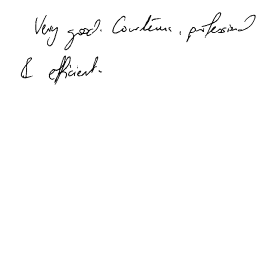 Very good. Courteous, professional
& efficient.